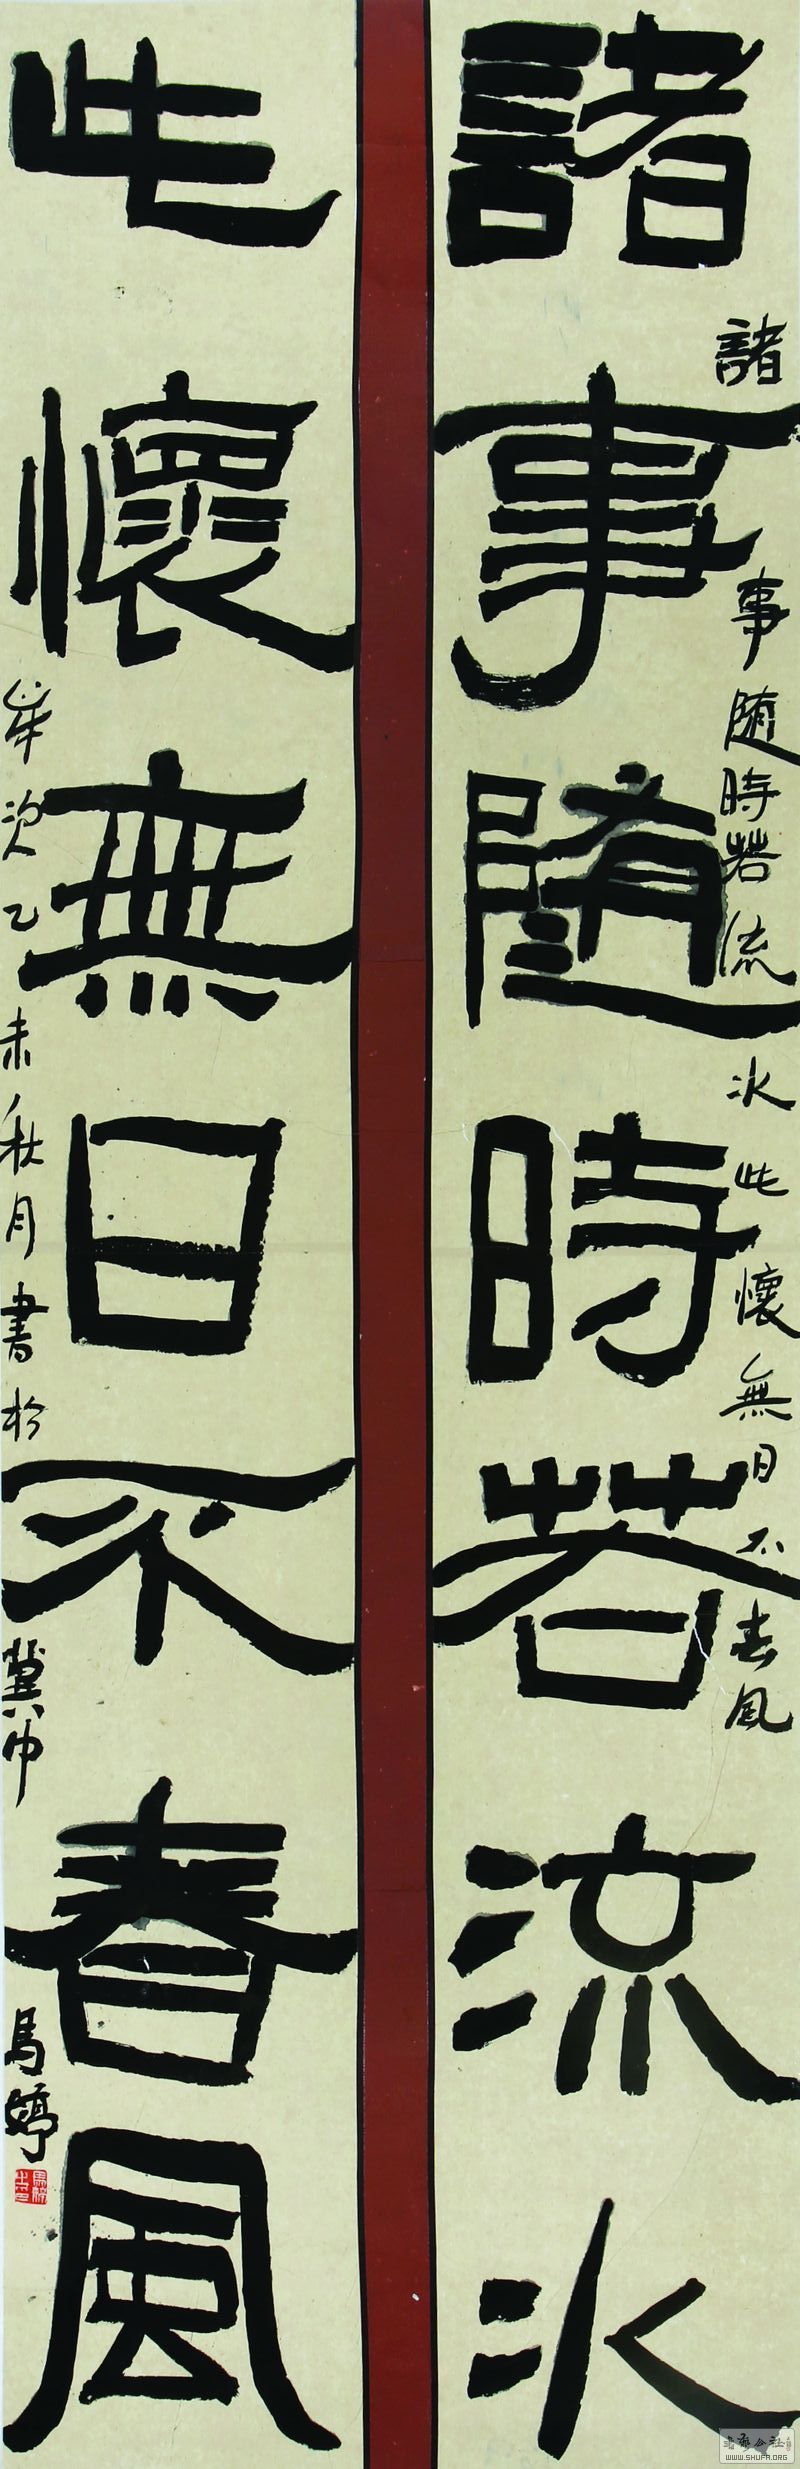 諸事随時若流水
諸事随時若流水此懷無日不春風
此懷無日不春風
歲次乙未秋月書於冀中馬婷
WWW.SHUFA.ORG